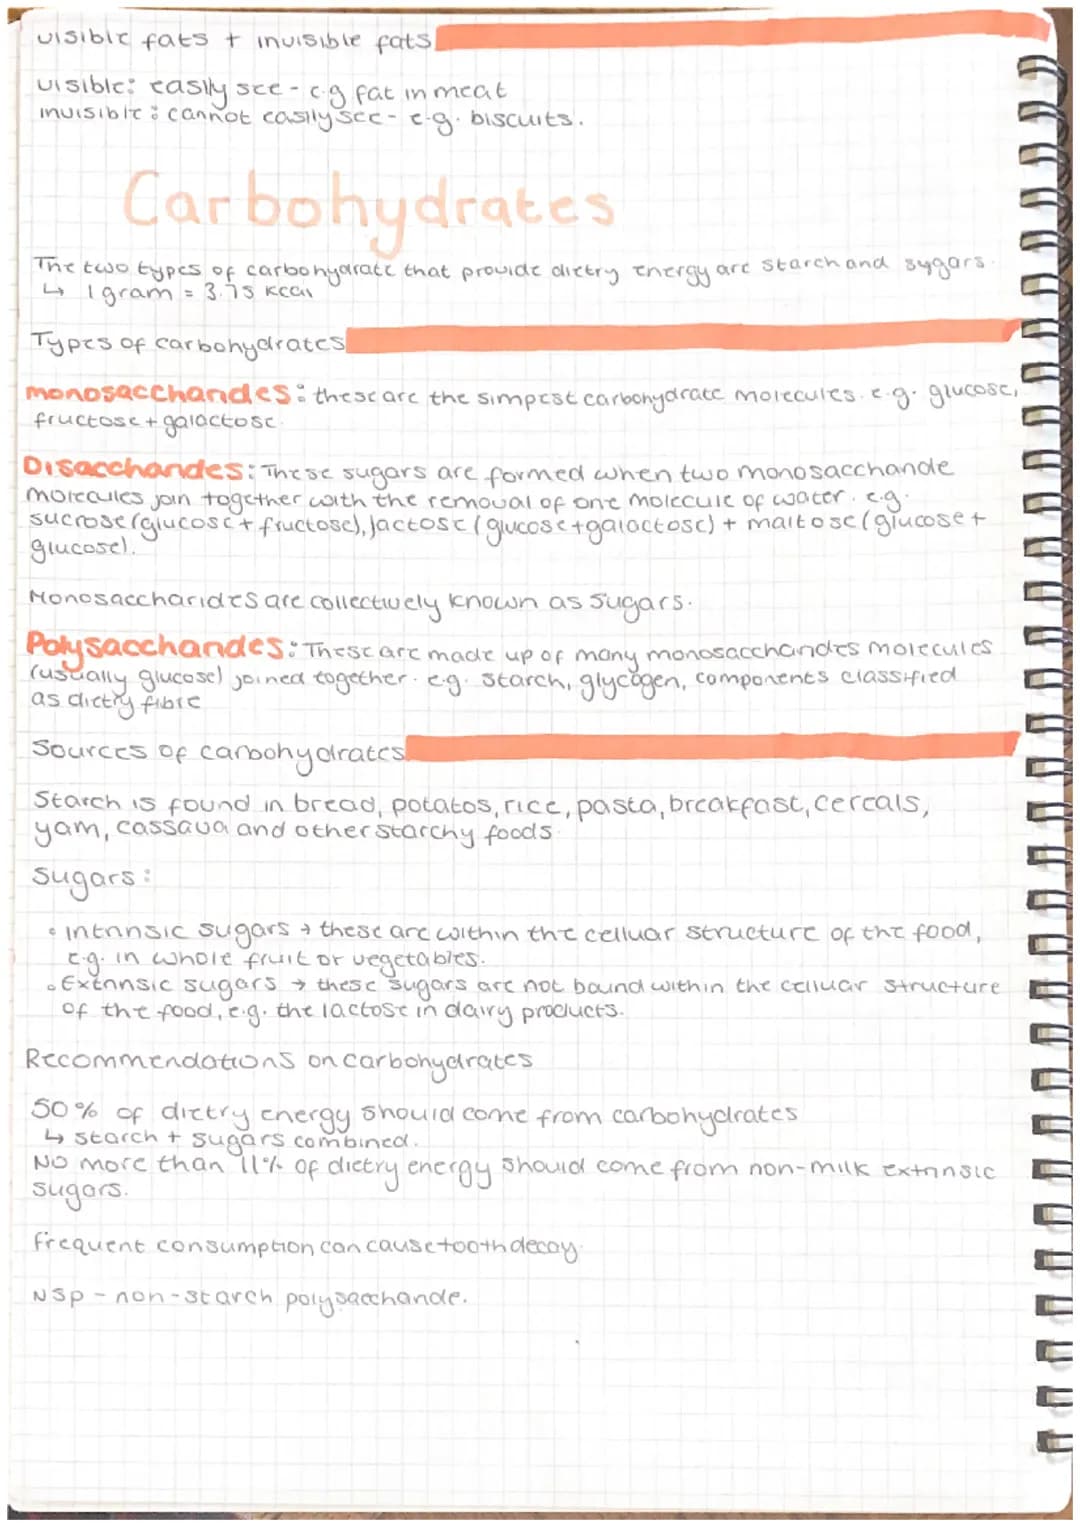 visible fats + invisible fats
visible: easily see - e.g fat in meat
invisible: cannot easily see - e.g. biscuits.
Carbohydrates
The two types of carbohydrate that provide dietry energy are starch and sygars.
↳ 1 gram = 3.75 kcal
Types of carbohydrates
monosaccharides: these are the simpest carbohydrate molecules. e.g. glucose,
fructose + galactose.
Disaccharides: These sugars are formed when two monosaccharide
molecules join together with the removal of one molecule of water. e.g.
sucrose (glucose + fructose), lactose (glucose + galactose) + maltose (glucose +
glucose).
Monosaccharides are collectively known as sugars.
Polysaccharides: These are made up of many monosaccharides molecules
(usually glucose) joined together. e.g. starch, glycogen, components classified
as dietry fibre
Sources of carbohydrates
Starch is found in bread, potatos, rice, pasta, breakfast, cereals,
yam, cassava and other starchy foods.
Sugars:
• intrinsic sugars → these are within the celluar structure of the food,
e.g. in whole fruit or vegetables.
• Extrinsic sugars → these sugars are not bound within the celluar structure
of the food, e.g. the lactose in dairy products.
Recommendations on carbohydrates
50% of dietry energy should come from carbohydrates
↳ starch + sugars combined.
No more than 11% of dietry energy should come from non-milk extrinsic
sugars.
frequent consumption can cause tooth decay.
NSP - non-starch polysaccharide.